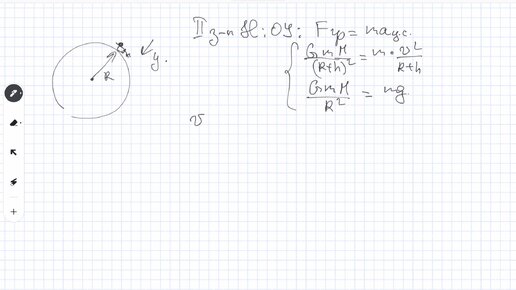 II з-н Н: OY: Fгр = maцс.
GmM/(R+h)² = m · v²/(R+h)
GmM/R² = mg
h
R
y.
v